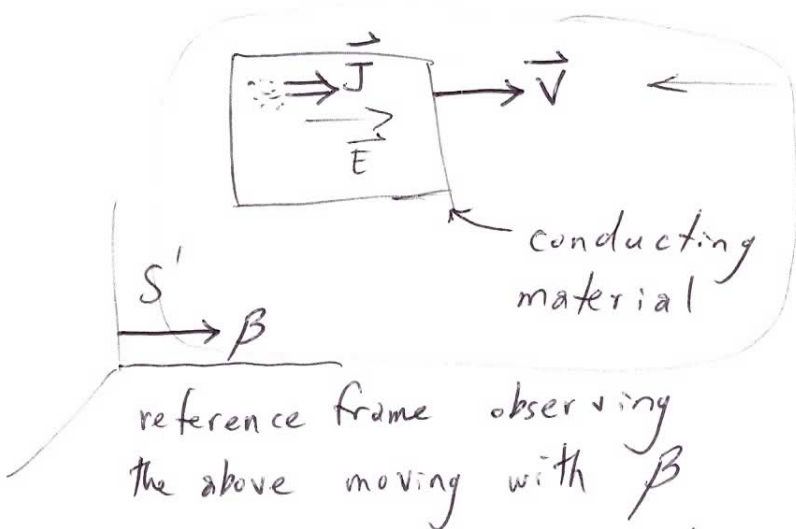 J
V
E
conducting
material
S'
β
reference frame observing
the above moving with β